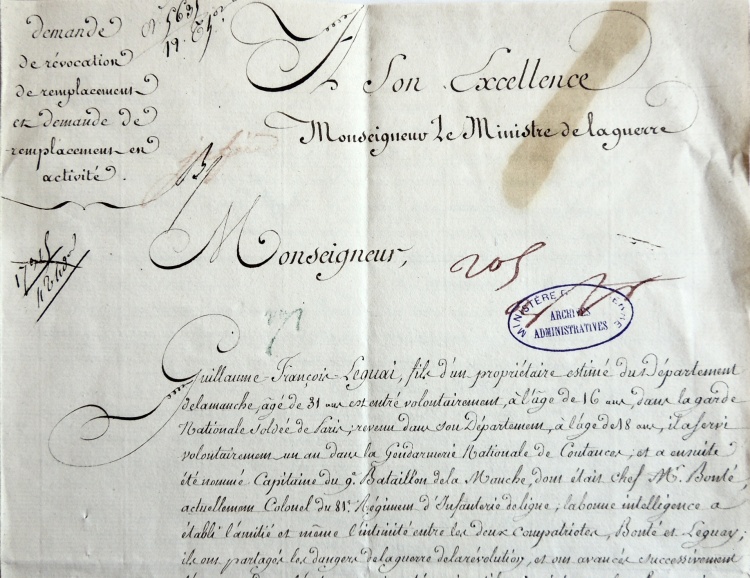 demande
de révocation
de remplacement
et demande de
remplacement en
activité.
A Son Excellence
Monseigneur Le Ministre de la guerre
Monseigneur,
205
MINISTÈRE
GUERRE
ARCHIVES
ADMINISTRATIVES
Guillaume François Leguai, fils d'un propriétaire estimé du Département
de la manche, âgé de 31 ans est entré volontairement, à l'âge de 16 ans, dans la garde
Nationale soldée de Paris; revenu dans son Département, à l'âge de 18 ans, il a servi
volontairement un an dans la Gendarmerie Nationale de Coutances; et a ensuite
été nommé Capitaine du 9e. Bataillon de la Manche, dont était chef Mr. Bonté,
actuellement Colonel du 81e. Régiment d'Infanterie de ligne; la bonne intelligence a
établi l'amitié et même l'intimité entre les deux compatriotes, Bonté et Leguay;
ils ont partagé les dangers de la guerre de la révolution, et ont avancés successivement